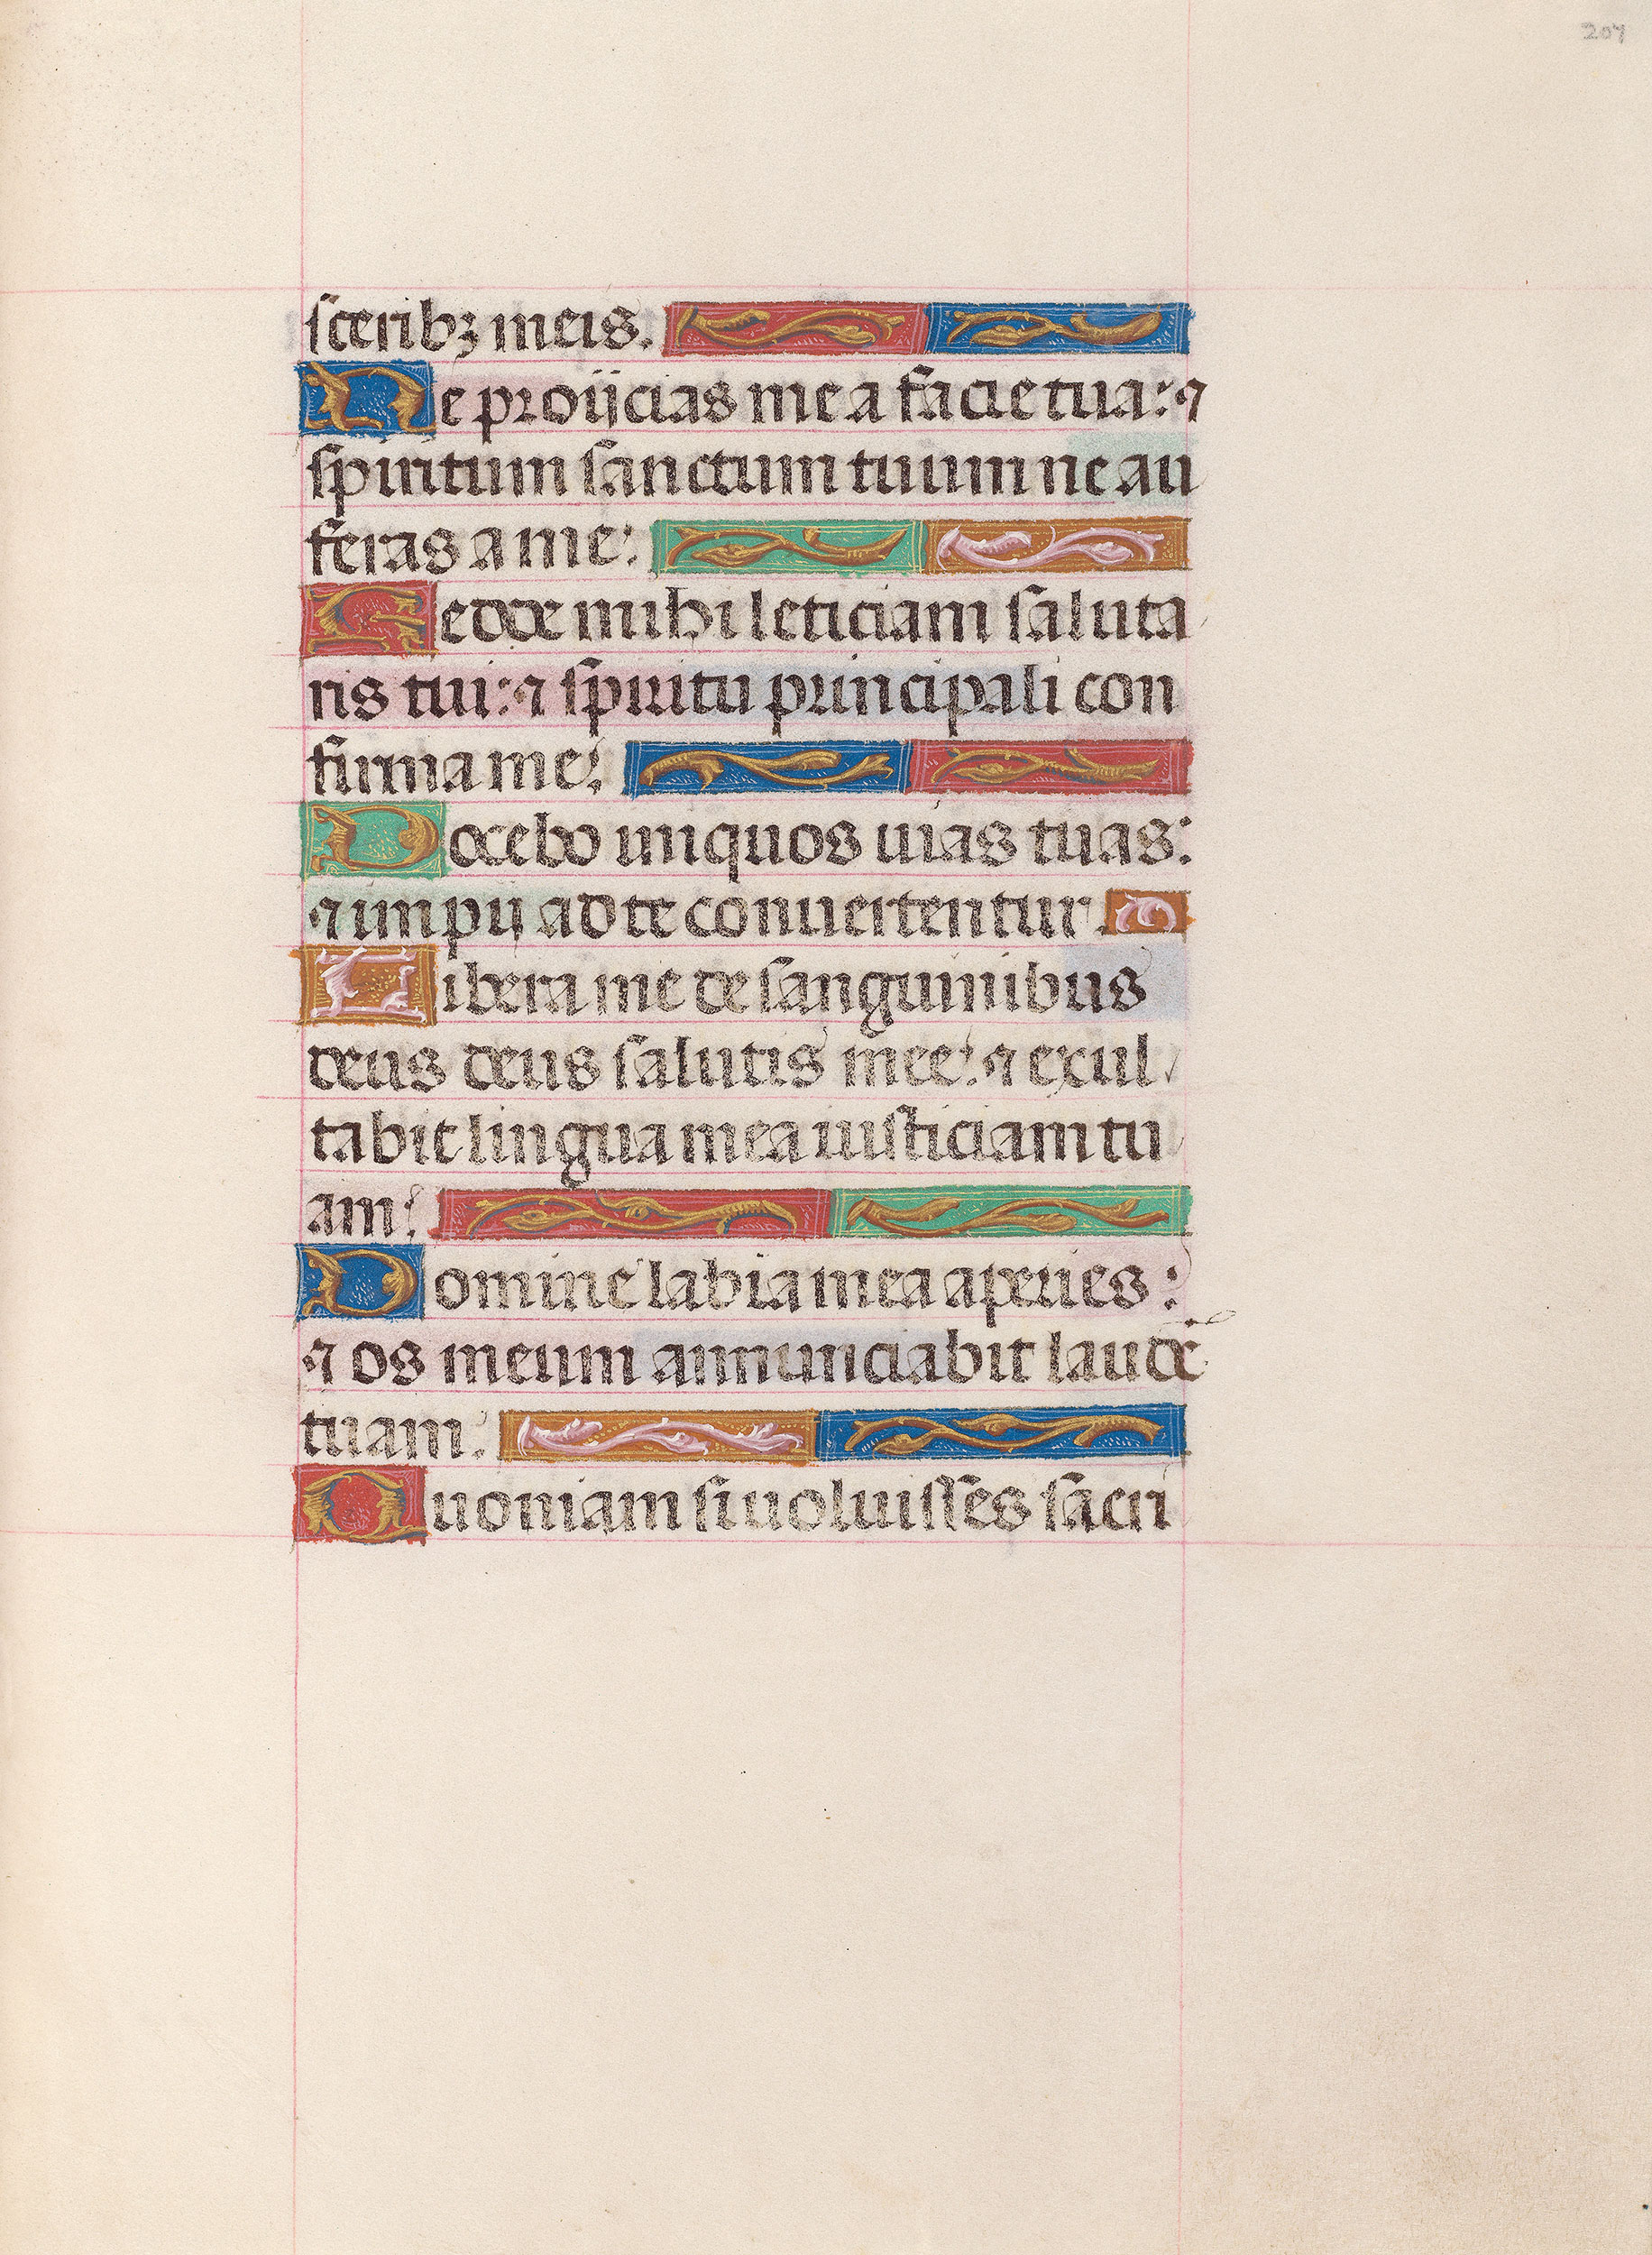 207
sceribꝫ meis.
Ne proiicias me a facie tua: ⁊
spiritum sanctum tuum ne au
feras a me:
Redde mihi leticiam saluta
ris tui: ⁊ spiritu principali con
firma me:
Docebo iniquos uias tuas:
⁊ impii ad te conuertentur.
Libera me de sanguinibus
deus deus salutis mee: ⁊ exul
tabit lingua mea iusticiam tu
am:
Domine labia mea aperies:
⁊ os meum annunciabit laudē
tuam:
Quoniam si uoluisses sacri